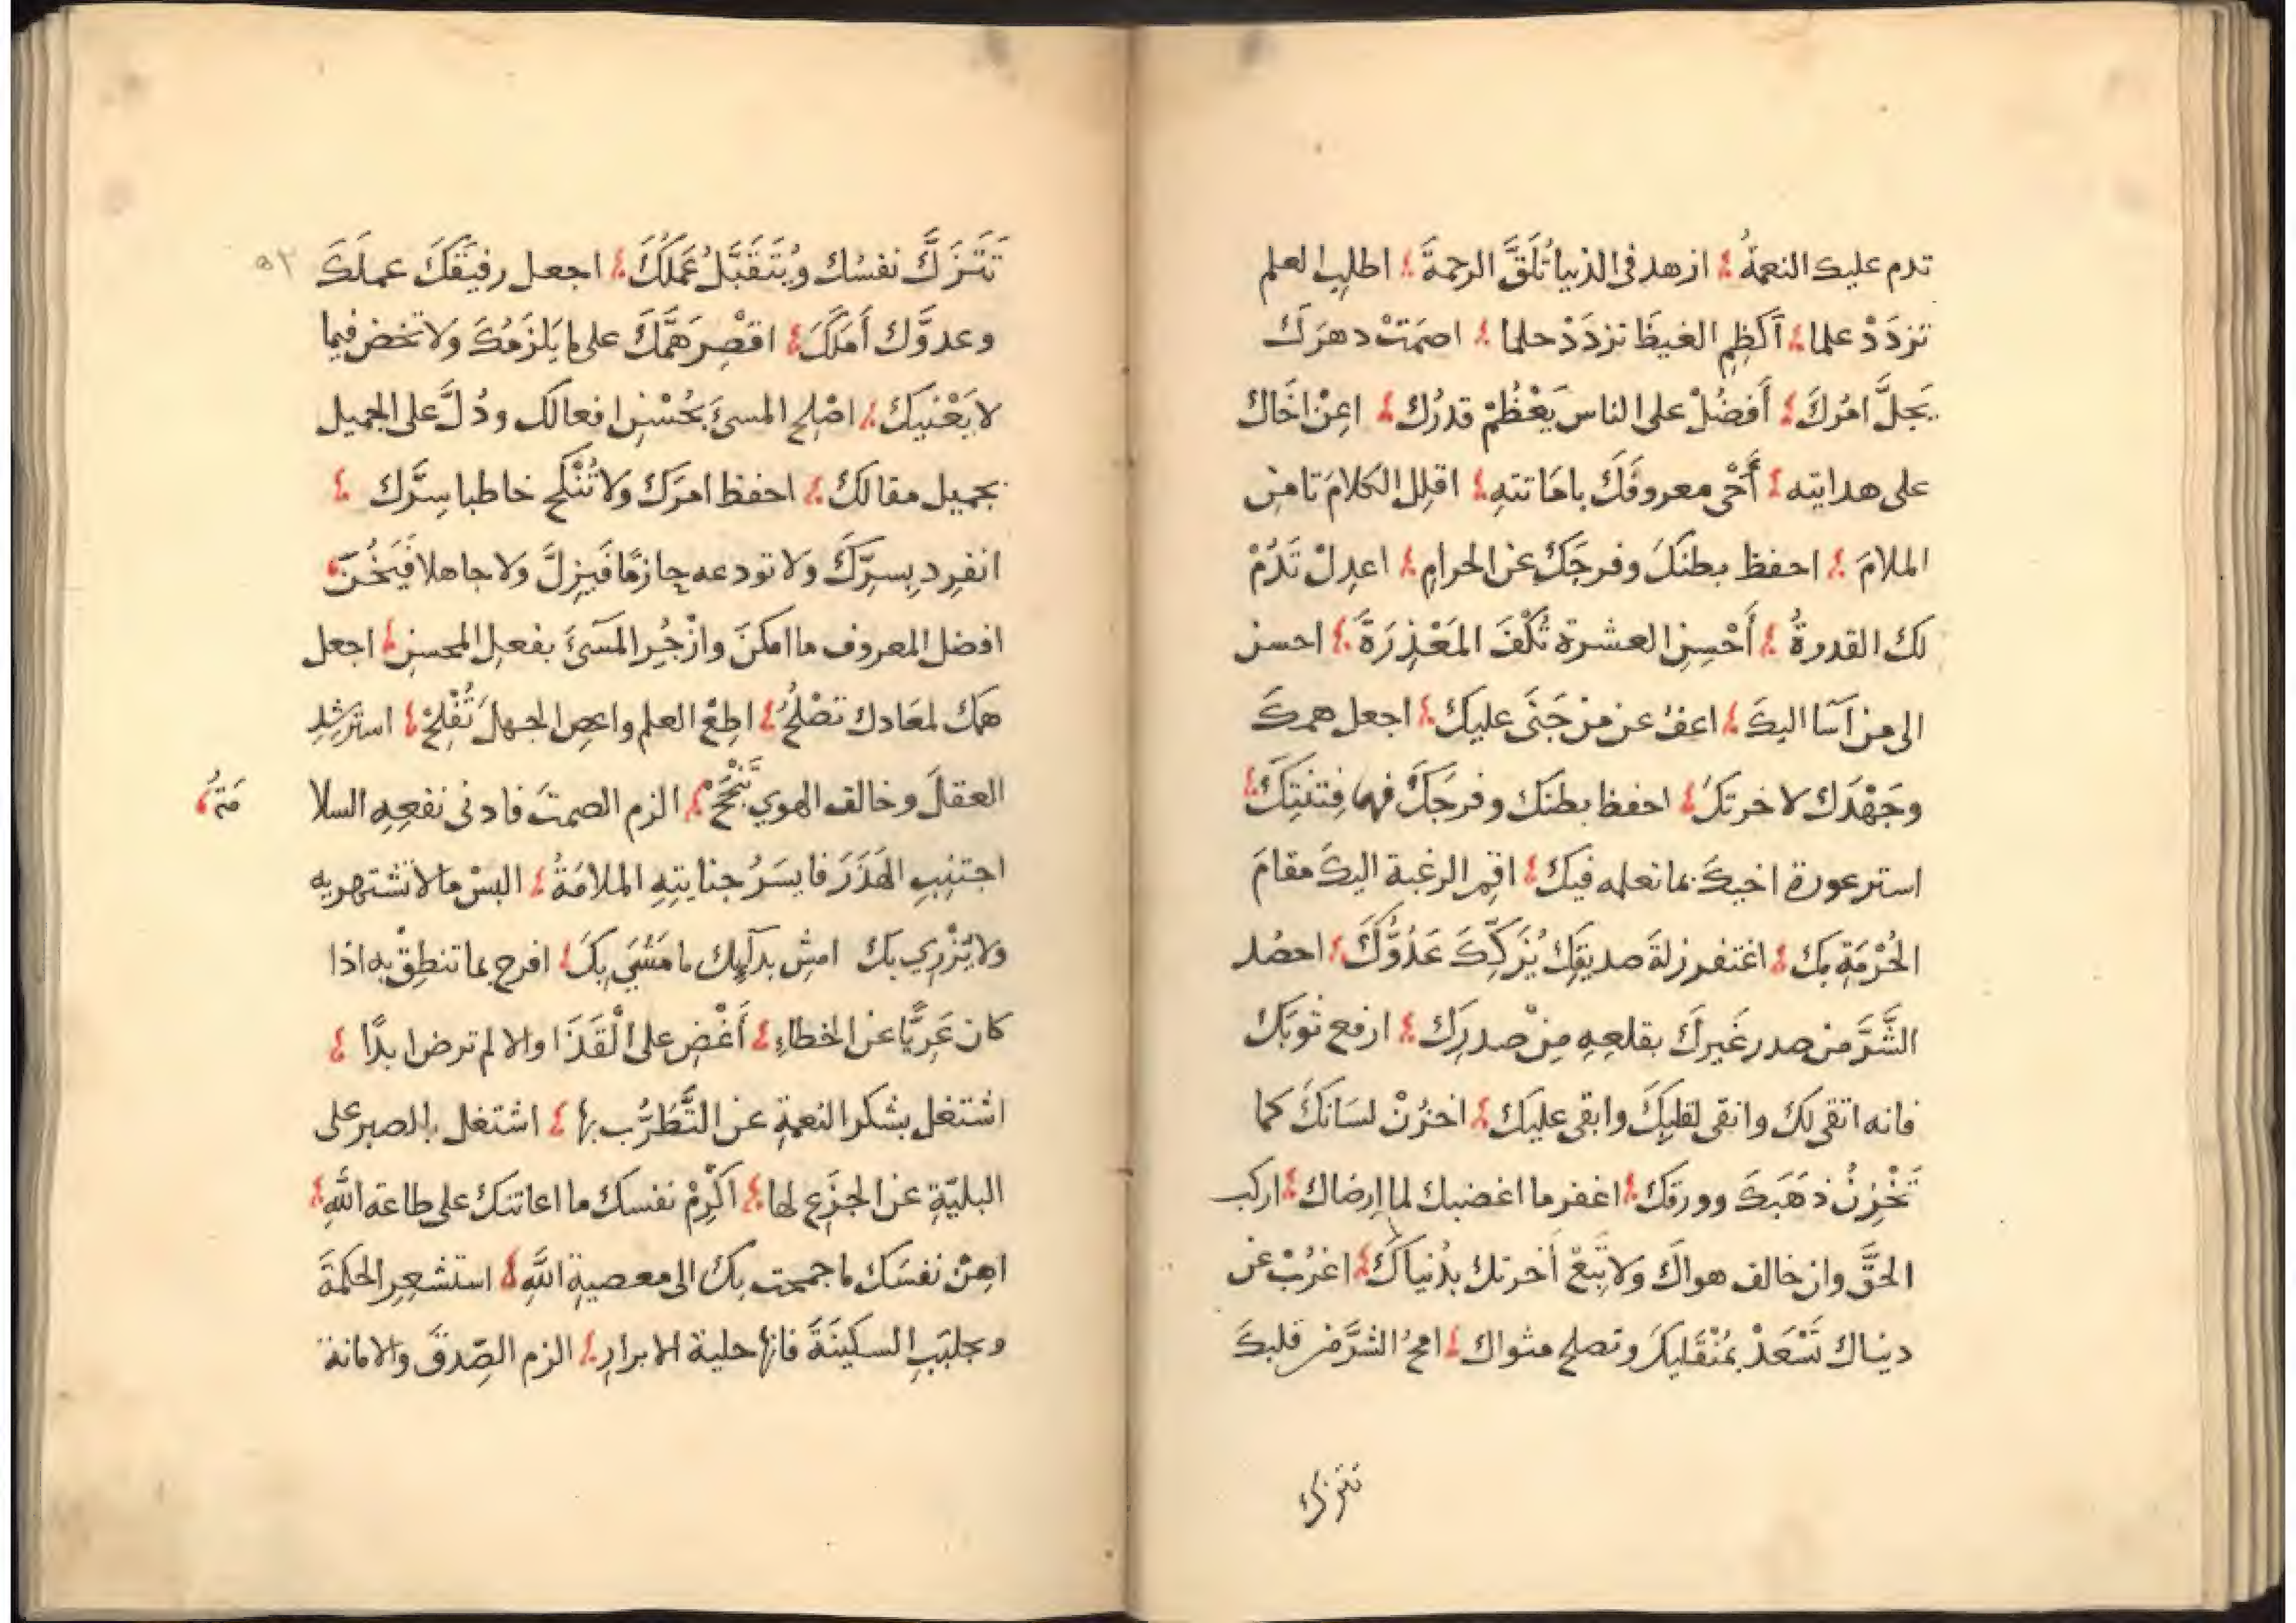 تدم عليك النعمةُ ازهد فى الدنيا تُلَقَّ الرحمةَ اطلبِ العلم
تزدَدْ علما أَكظِمِ الغيظَ تزدَدْ حلما اصمَتْ دهرَكَ
يَجلَّ امْرُكَ أَفضُلْ على الناس يَعْظُمْ قدرُكَ اعِنْ اخَاك
على هدايته أَحْىِ معروفَكَ باماتتهِ اقلِلِ الكلامَ تامنِ
الملامَ احفظ بطنَكَ وفرجَكَ عن الحرامِ اعدِلْ تَدُمْ
لك القدرةُ أَحْسِنِ العشرة تُكْفَ المَعْذِرَةَ احسن
الى من أسَا اليكَ اعفُ عن من جَنَى عليكَ اجعل همكَ
وجَهْدَك لاخرتكَ احفظ بطنَكَ وفرجَكَ فهما فِتنتِكَ
استر عورة اخيكَ بما تعلمه فيك اقِمِ الرغبة اليكَ مقامَ
الحُرْمَةِ بكَ اغتفر زلةَ صديقِكَ يُزَكِّكَ عَدُوُّكَ احصُد
الشَّرَّ من صدر غَيرِكَ بقلعِهِ مِنْ صدرِكَ ارفع ثوبَكَ
فانه اتقى لك وانقى لقلبِكَ وابقى عليكَ اخزُنْ لسَانَكَ كما
تَخْزِنُ ذهَبَكَ وورقكَ اغفر ما اغضبك لما ارضاك اركب
الحقَّ وان خالف هواكَ ولا تَبِعْ أخرتك بدُنياكَ اغرُبْ عن
دنياك تَسْعَدْ بمُنْقَلبِكَ وتصلح مثواك امحُ الشرَّ من قلبكَ
تتزكَّ
٥٢
تَتَزَكَّ نفسُك ويُتَقَبَّلُ عَمَلُكَ اجعل رفيقَكَ عملَكَ
وعدوَّك أَمَلَكَ اقْصِر هَمَّكَ على ما يَلزمُكَ ولا تخض فيما
لا يَعْنيكَ اصْلِحِ المسىَ بحُسْنِ افعالك ودُلَّ على الجميل
بجميل مقالكَ احفظ امرَكَ ولا تُنْكِح خاطبا سِرَّك
انفرِد بِسرِّكَ ولا تودعه حازمًا فَيَزِلَّ ولا جاهلا فَيَخُنَ
افضل المعروف ما امكنَ وازْجُرِ المسىَ بفعلِ المحسنِ اجعل
همك لمعَادك تصْلُحْ اطِعْ العلم واعصِ الجهلَ تُفْلِحْ استرشِدِ
العقلَ وخالف الهوي تَنْجَحْ الزم الصمتَ فادنى نفعِهِ السلا مَتهُ
اجتنِبِ الهَذَرَ فايسَرُ جنايتِهِ الملامَةُ البسْ ما لا تشتهر به
ولا يَزْرِي بك امشِ بدآيِك ما مَشَى بكَ افرح بما تنطِقْ به اذا
كان عَرِيًّا عن الخطاءِ أَغْضِ على القَذَا والا لم ترض ابدًا
اشتغل بشكر النعمةِ عن التَّطَرُّبِ بها اشتغل بالصبر على
البليّةِ عن الجزَعِ لها اكَرِمْ نفسك ما اعانتك على طاعة اللّٰهِ
اهِنْ نفسَك ما جمحت بكَ الى معصيةِ اللّٰهِ استشعِرِ الحكمَةَ
وتجلبَبِ السكينَةَ فانها حلية الابرارِ الزم الصّدقَ والامانة